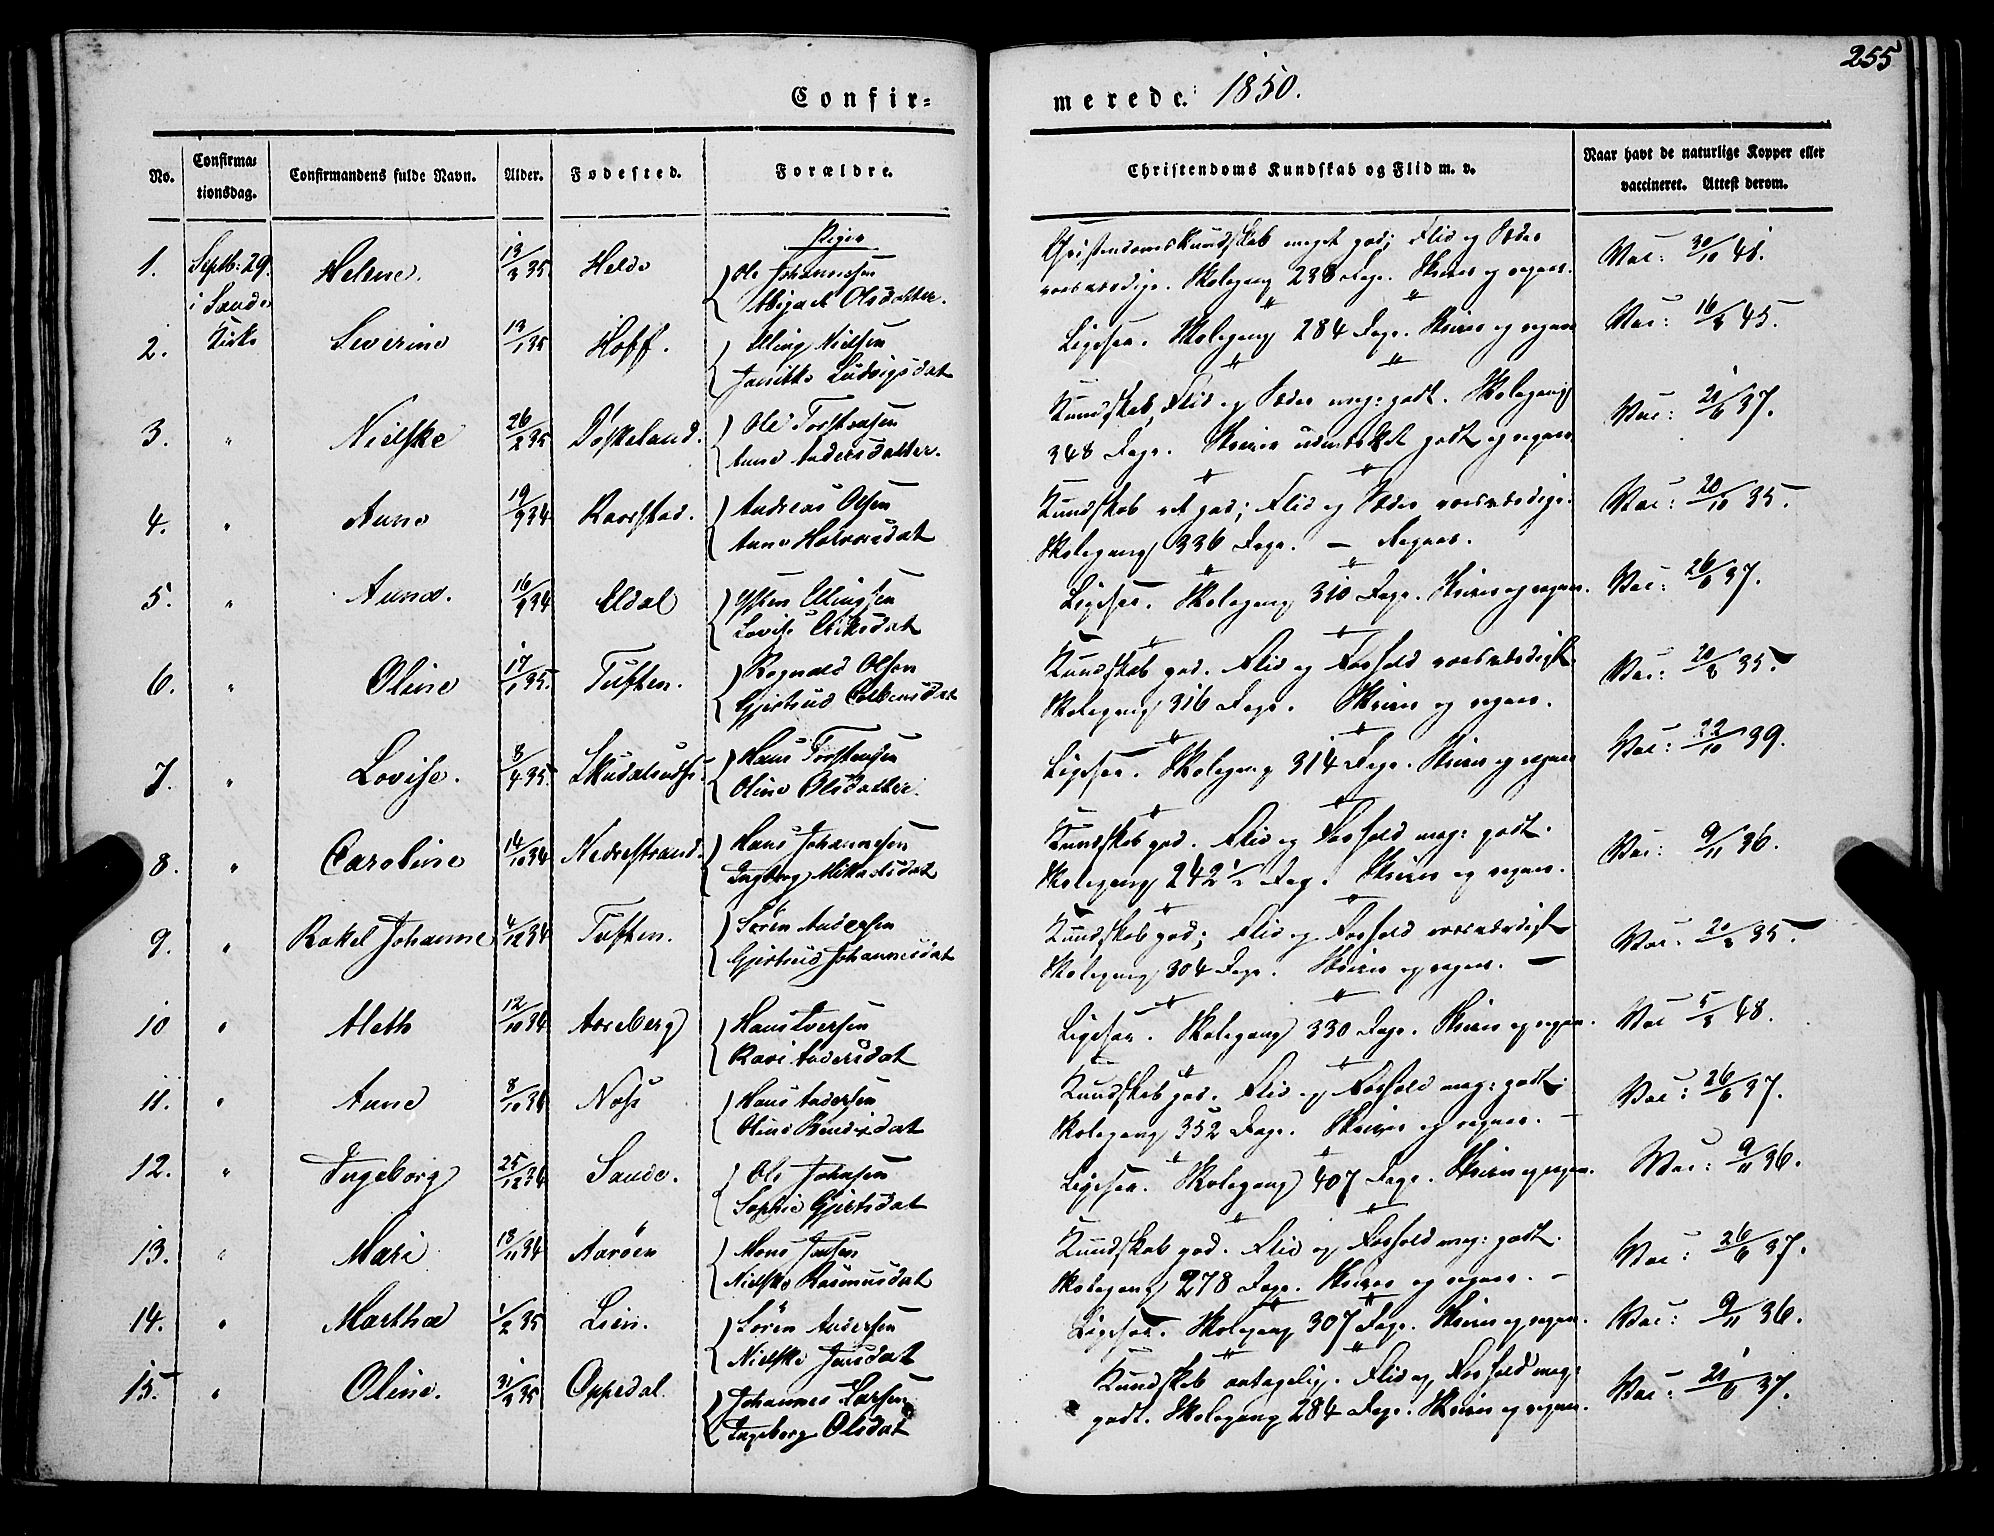 255
Confir=
merede. 1850.
No.
Confirma=
tionsdag.
Confirmandens fulde Navn.
Alder.
Fødested.
Forældre.
Christendoms Kundskab og Flid m. v.
Naar havt de naturlige Kopper eller
vaccineret. Attest derom.
Piger
1. Septb: 29. Helene. 13/3 35 Helde Ole Johannessen
i Sande Abigael Olsdatter.
Christendomskundskab meget god; Flid og Sæder
roesværdige. Skolegang 238 Dage. Skriver og regner.
Vac: 30/10 41.
2. Kirke Severine 13/1 35 Hoff. Elling Nielsen
Ludvigsdat
Ligesaa. Skolegang 284 Dage. Skriver og regner
Vac: 16/8 45.
3. " Nielske 26/2 35 Døskeland. Ole Torstensen
Anne Andersdatter.
Kundskab, Flid og Sæder meg: godt. Skolegang
348 Dage. Skriver udmærket godt og regner
Vac: 21/6 37.
4. " Anne 19/9 34 Ravstad. Andreas Olsen
Anne Halvorsdat
Kundskab ret god; Flid og Sæder roesværdige.
Skolegang 336 Dage. — Regner.
Vac: 20/10 35.
5. " Anna. 16/9 34 Eldal Ellingsen
Lovise Eriksdat
Ligesaa. Skolegang 310 Dage. Skriver og regner.
Vac: 26/6 37.
6. " Oline 17/1 35. Tuften. Rognald Olsen
Gjertrud
Kundskab god. Flid og Forhold roesværdigt.
Skolegang 316 Dage. Skriver og regner.
Vac: 20/8 35.
7. " Lovise. 3/4 35. Hans Torstensen
Oline Olsdatter.
Ligesaa. Skolegang 314 Dage. Skriver og regner
Vac: 22/10 39.
8. " Caroline 14/10 34 Nedrestrand. Hans Johannesen
Ingborg Mikkelsdat
Kundskab god. Flid og Forhold meg: godt.
Skolegang 242 1/2 Dag. Skriver og regner.
Vac: 9/11 36.
9. " Rakel Johanne 4/12 34 Tuften. Sören Andersen
Gjertrud Johannesdat
Kundskab god; Flid og Forhold roesværdigt
Skolegang 304 Dage. Skriver og regner. —
Vac: 20/8 35.
10 " Aleth 12/10 34 Aareberg Hans Iversen
Kari Andersdat
Ligesaa. Skolegang 330 Dage. Skriver og regner.
Vac 5/8 48.
11. " Anne 8/10 34 Hans Andersen
Oline Bendixdat
Kundskab god. Flid og Forhold meg: godt.
Skolegang 352 Dage. Skriver og regner. —
Vac: 26/6 37.
12. " Ingeborg 25/12 34 Sande. Ole Johnsen
Sophie Gjertsdat
Ligesaa. Skolegang 407 Dage. Skriver og regner.
Vac: 9/11 36.
13. " Mari 18/11 34 Aaröen Mons Jensen
Nielske Rasmusdat
Kundskab god. Flid og Forhold meg: godt.
Skolegang 278 Dage. Skriver og regner. —
Vac: 26/6 37.
14. " Martha 1/2 35 Lien. Sören Andersen
Nielske Jensdat
Ligesaa. Skolegang 307 Dage. Skriver og regner.
Vac: 9/11 36.
15. " Oline. 31/3 35 Oppedal. Johannes Larsen
Ingeborg Olsdat
Kundskab antagelig. Flid og Forhold meg:
godt. Skolegang 284 Dage. Skriver og regner.
Vac: 21/6 37.